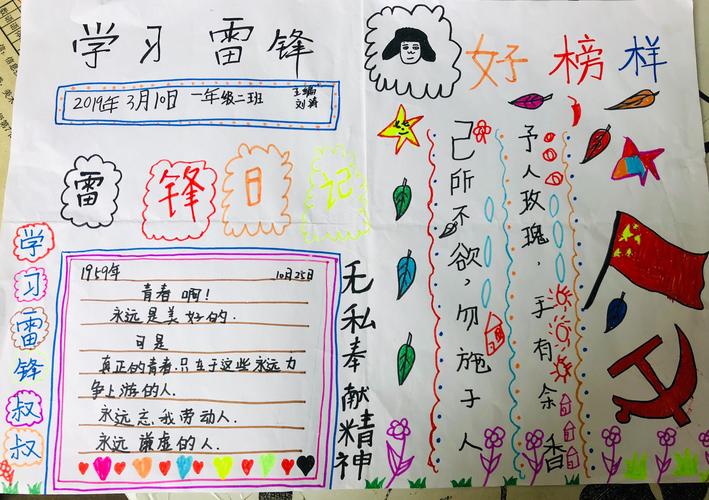 学习 雷锋
好榜样
2019年 3月10日 一年级二班
主编
刘涛
雷锋日记
学习雷锋叔叔
1959年 10月25日
青春啊!
永远是美好的.
可是
真正的青春.只在于这些永远力
争上游的人.
永远忘我劳动人.
永远谦虚的人.
无私奉献精神
己所不欲,勿施于人
予人玫瑰,手有余香